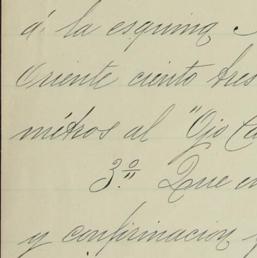 á la esquina
Oriente ciento tres
métros al "Ojo Ca
3º Que en
y confirmacion